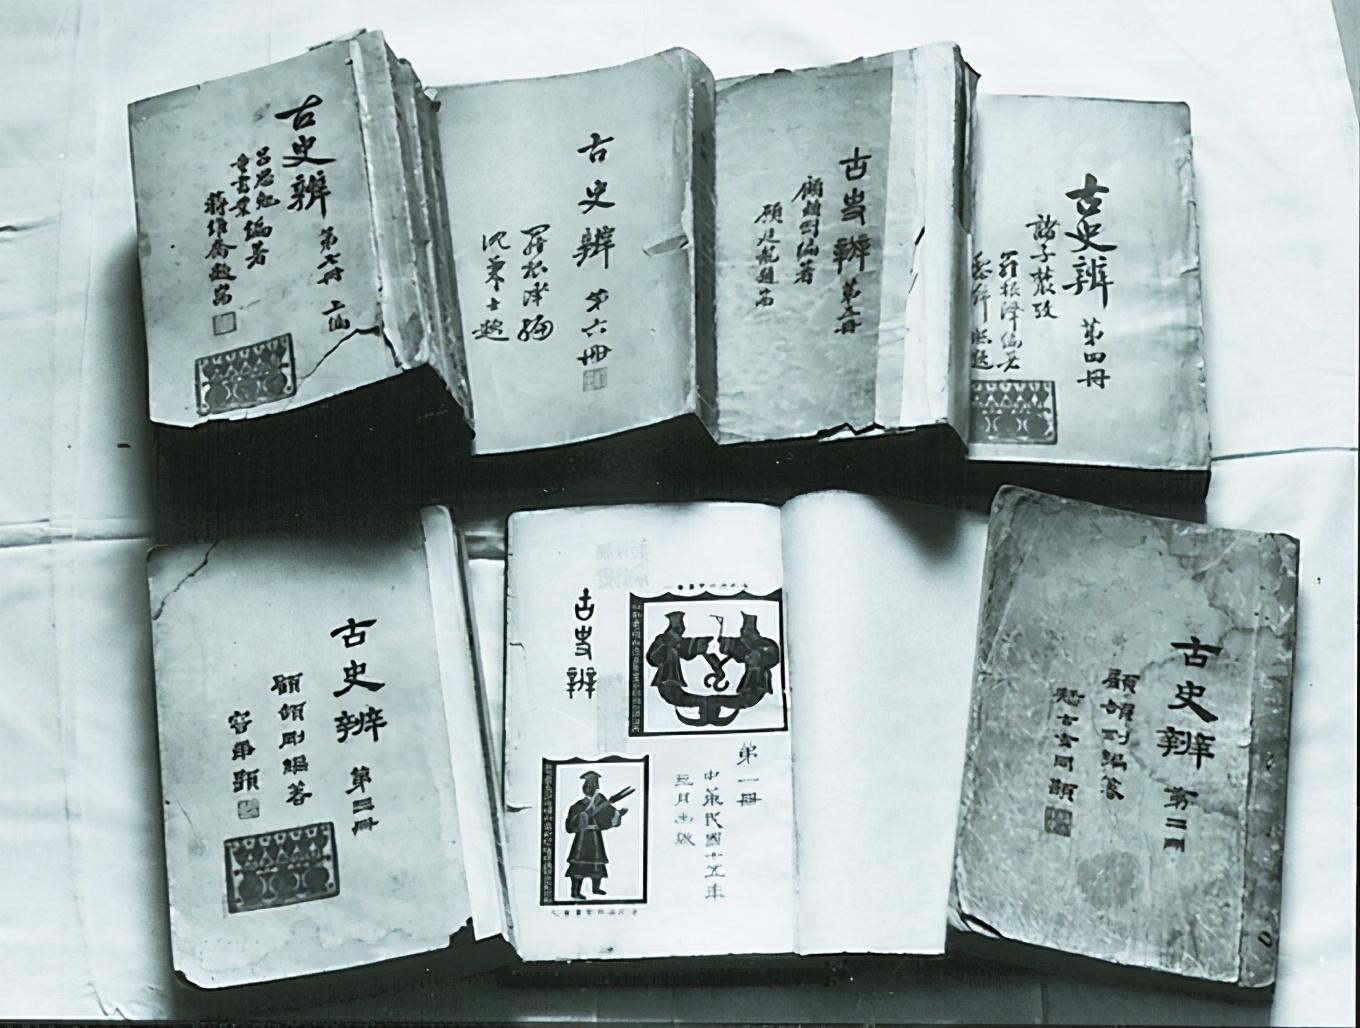 古史辨 第七冊 上編
呂思勉
童書業 編著
蔣維喬題耑
古史辨 第六冊
羅根澤編
沈兼士題
古史辨 第五冊
顧頡剛編著
顧廷龍題耑
古史辨 第四冊
諸子叢攷
羅根澤編著
古史辨 第三冊
顧頡剛編著
容庚題
古史辨
第一冊
中華民國十五年
六月出版
古史辨 第二冊
顧頡剛編著
疑古玄同題